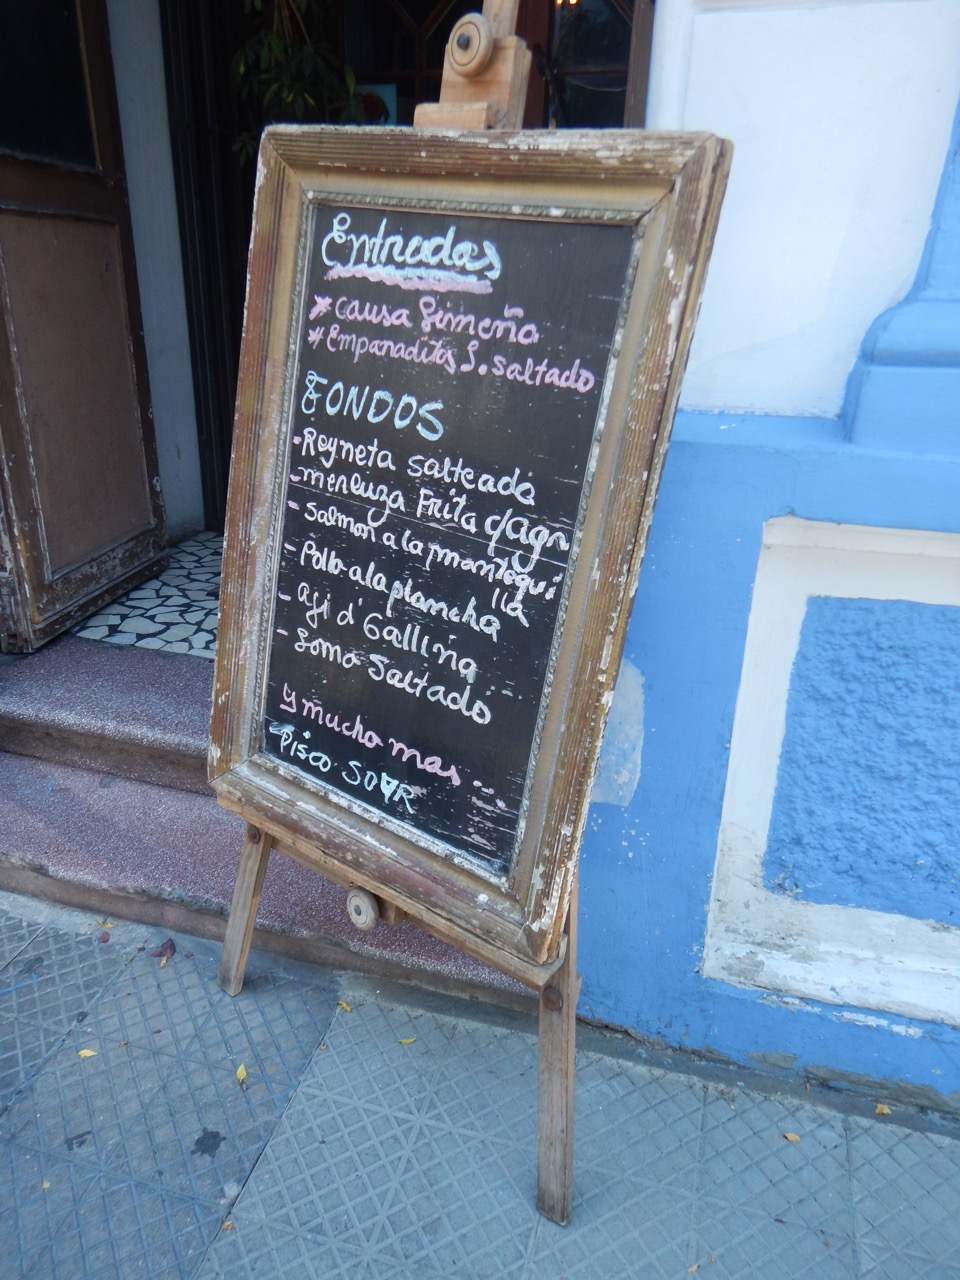 Entradas
* causa limeña
* Empanaditas L. saltado
FONDOS
- Reyneta salteada
- merluza Frita c/agr
- salmon a la mantequi
lla
- Pollo a la plancha
- aji d' Gallina
- Lomo Saltado
y mucho mas...
PISCO SOUR